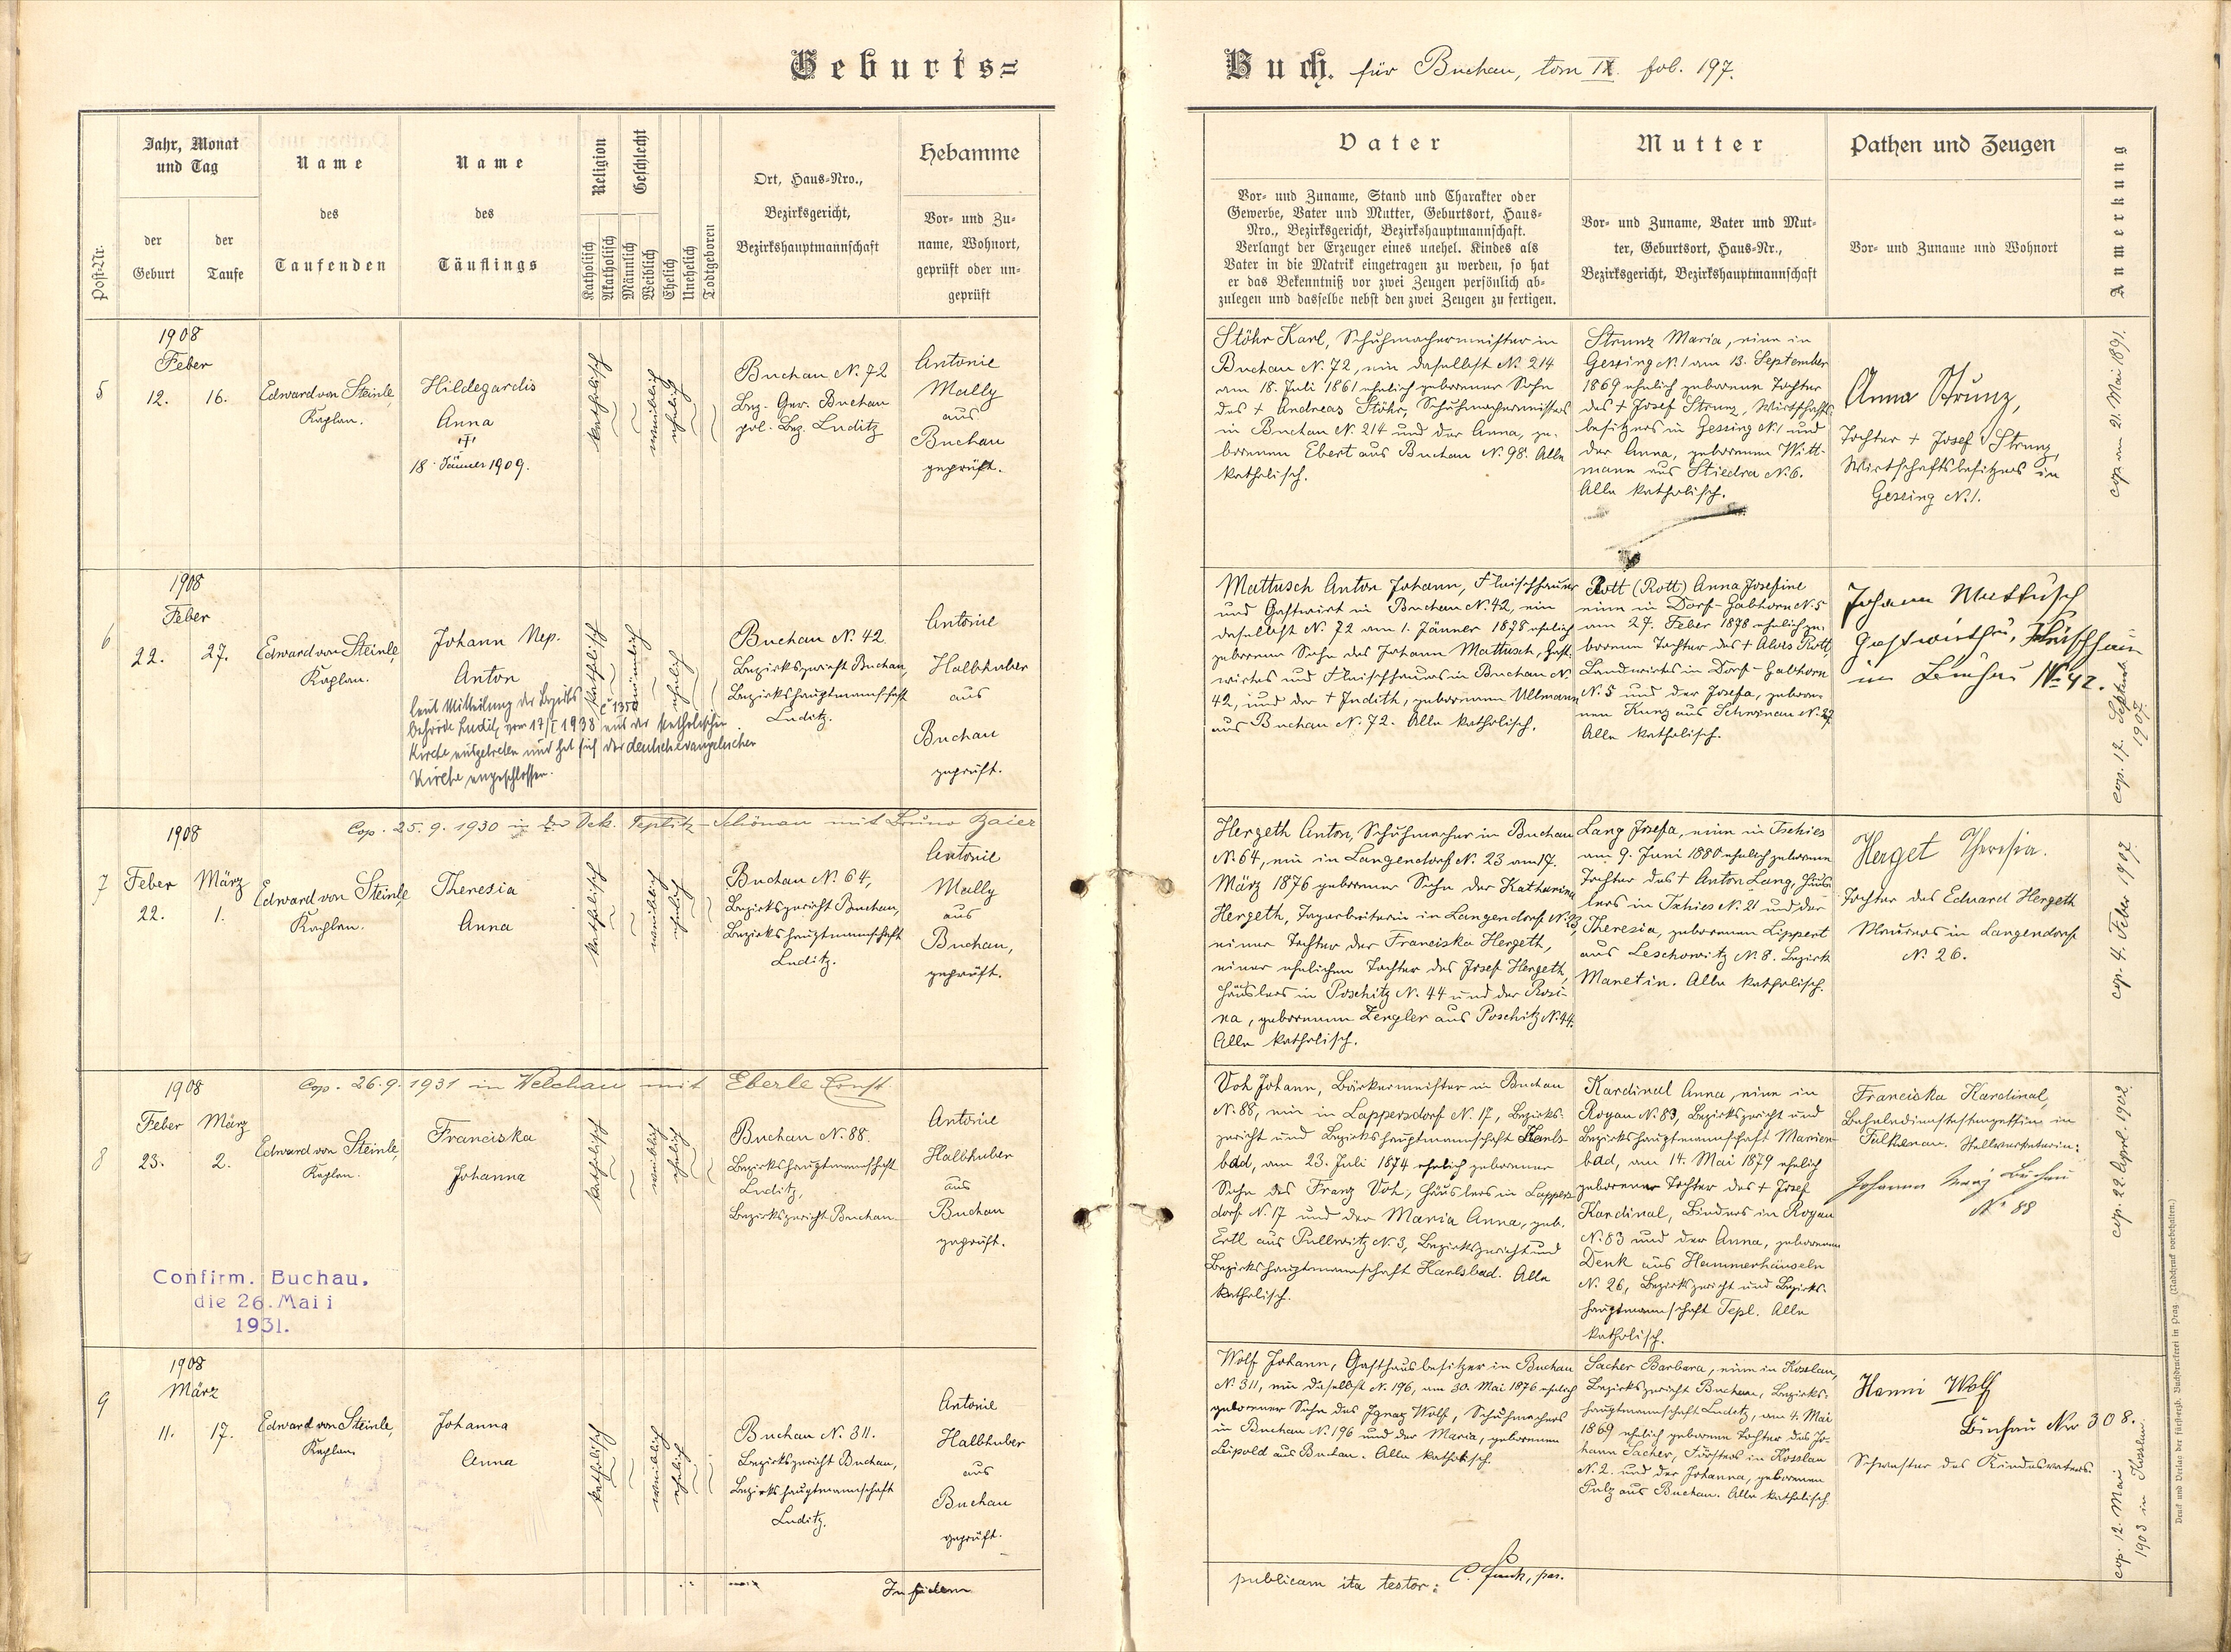 Geburts=
Buch. für Buchau, tom IX. fol. 197.
Post-Nr.
Jahr, Monat
und Tag
der
Geburt
der
Taufe
Name
des
Taufenden
Name
des
Täuflings
Religion
Katholisch
Akatholisch
Geschlecht
Männlich
Weiblich
Ehelich
Unehelich
Todtgeboren
Ort, Haus=Nro.,
Bezirksgericht,
Bezirkshauptmannschaft
Hebamme
Vor= und Zu=
name, Wohnort,
geprüft oder un=
geprüft
Vater
Vor= und Zuname, Stand und Charakter oder
Gewerbe, Vater und Mutter, Geburtsort, Haus=
Nro., Bezirksgericht, Bezirkshauptmannschaft.
Verlangt der Erzeuger eines unehel. Kindes als
Vater in die Matrik eingetragen zu werden, so hat
er das Bekenntniß vor zwei Zeugen persönlich ab=
zulegen und dasselbe nebst den zwei Zeugen zu fertigen.
Mutter
Vor= und Zuname, Vater und Mut=
ter, Geburtsort, Haus=Nr.,
Bezirksgericht, Bezirkshauptmannschaft
Pathen und Zeugen
Vor= und Zuname und Wohnort
Anmerkung
5
1908
Feber
12. 16.
Edward von Steinle,
Kaplan.
Hildegardis
Anna
†
18. Jänner 1909.
katholisch
weiblich
ehelich
Buchau N. 72
Bez. Ger. Buchau
pol. Bez. Luditz
Antonie
Mally
aus
Buchau
geprüft.
Stöhr Karl, Schuhmachermeister in
Buchau N. 72, ein daselbst N. 214
am 18. Juli 1861 ehelich geborener Sohn
des † Andreas Stöhr, Schuhmachermeisters
in Buchau N. 214 und der Anna, ge-
borenen Ebert aus Buchau N. 98. Alle
katholisch.
Strunz Maria, eine in
Gessing N. 1 am 13. September
1869 ehelich geborene Tochter
des † Josef Strunz, Wirtschafts-
besitzers in Gessing N. 1 und
der Anna, geborenen Witt-
mann aus Stiedra N. 6.
Alle katholisch.
Anna Strunz,
Tochter † Josef Strunz,
Wirtschaftsbesitzers in
Gessing N. 1.
cop. am 21. Mai 1891.
6
1908
Feber
22. 27.
Edward von Steinle,
Kaplan.
Johann Nep.
Anton
laut Mitteilung der Bezirks
behörde Luditz vom 17/I 1938 aus der katholischen
Kirche ausgetreten und hat sich der deutschevangelischen
Kirche angeschlossen.
katholisch
männlich
ehelich
Buchau N. 42
Bezirksgericht Buchau,
Bezirkshauptmannschaft
Luditz.
Antonie
Halbhuber
aus
Buchau
geprüft.
Mattusch Anton Johann, Fleischhauer
und Gastwirt in Buchau N. 42, ein
daselbst N. 72 am 1. Jänner 1878 ehelich
geborener Sohn des Johann Mattusch, Gast-
wirtes und Fleischhauers in Buchau N.
42, und der † Judith, geborenen Ullmann
aus Buchau N. 72. Alle katholisch.
Rott (Rott) Anna Josefine
eine in Dorf-Gabhorn N. 5
am 27. Feber 1878 ehelich ge-
borene Tochter des † Alois Rott,
Landwirtes in Dorf-Gabhorn
N. 5 und der Josefa, gebore-
nen Kunz aus Schönau N. 27.
Alle katholisch.
Johann Mattusch
Gastwirth u. Fleischhau
in Buchau No 42.
cop. 17. Septemb.
1907.
7
1908
Cop. 25. 9. 1930 in der Dek. Teplitz-Schönau mit Bruno Baier
Feber März
22. 1.
Edward von Steinle
Kaplan.
Theresia
Anna
katholisch
weiblich
ehelich
Buchau N. 64,
Bezirksgericht Buchau,
Bezirkshauptmannschaft
Luditz.
Antonie
Mally
aus
Buchau,
geprüft.
Hergeth Anton, Schuhmacher in Buchau
N. 64, ein in Langendorf N. 23 am 17.
März 1876 geborener Sohn der Katharina
Hergeth, Tagarbeiterin in Langendorf N. 23,
einer Tochter der Franciska Hergeth,
einer ehelichen Tochter des Josef Hergeth,
Häuslers in Poschitz N. 44 und der Rosi-
na, geborenen Zengler aus Poschitz N. 44.
Alle katholisch.
Lang Josefa, eine in Tschies
am 9. Juni 1880 ehelich geborene
Tochter des † Anton Lang, Häus-
lers in Tschies N. 21 und der
Theresia, geborenen Lippert
aus Leschowitz N. 8. Bezirk
Manetin. Alle katholisch.
Herget Theresia.
Tochter des Eduard Hergeth
Maurers in Langendorf
N. 26.
cop. 4. Feber 1907.
8
1908
Cop. 26. 9. 1931 in Welchau mit Eberle Ernst
Feber März
23. 2.
Edward von Steinle,
Kaplan.
Franciska
Johanna
katholisch
weiblich
ehelich
Buchau N. 88.
Bezirkshauptmannschaft
Luditz,
Bezirksgericht Buchau
Antonie
Halbhuber
aus
Buchau
geprüft.
Confirm. Buchau,
die 26. Maii
1931.
Voh Johann, Bäckermeister in Buchau
N. 88, ein in Lappersdorf N. 17, Bezirks-
gericht und Bezirkshauptmannschaft Karls-
bad, am 23. Juli 1874 ehelich geborener
Sohn des Franz Voh, Häuslers in Lappers-
dorf N. 17 und der Maria Anna, geb.
Ertl aus Pullwitz N. 3, Bezirksgericht und
Bezirkshauptmannschaft Karlsbad. Alle
katholisch.
Kardinal Anna, eine in
Royau N. 83, Bezirksgericht und
Bezirkshauptmannschaft Marien-
bad, am 14. Mai 1879 ehelich
geborener Tochter des † Josef
Kardinal, Binders in Royau
N. 83 und der Anna, geborenen
Denk aus Hammerhäuseln
N. 26, Bezirksgericht und Bezirks-
hauptmannschaft Tepl. Alle
katholisch.
Franciska Kardinal,
in
Falkenau. Stellvertreterin:
Johanna Buchau
No 88
cop. 22. April. 1902.
9
1908
März
11. 17.
Edward von Steinle,
Kaplan
Johanna
Anna
katholisch
weiblich
ehelich
Buchau N. 311.
Bezirksgericht Buchau,
Bezirkshauptmannschaft
Luditz.
Antonie
Halbhuber
aus
Buchau
geprüft.
Wolf Johann, Gasthausbesitzer in Buchau
N. 311, ein daselbst N. 196, am 30. Mai 1876 ehelich
geborener Sohn des Ignaz Wolf, Schuhmachers
in Buchau N. 196 und der Maria, geborenen
Leipold aus Buchau. Alle katholisch.
Sacher Barbara, eine in Kosslau,
Bezirksgericht Buchau, Bezirks-
hauptmannschaft Luditz, am 4. Mai
1869 ehelich geborene Tochter des Jo-
hann Sacher, Försters in Kosslau
N. 2. und der Johanna, geborenen
Pulz aus Buchau. Alle katholisch
Hanni Wolf
Buchau Nro 308.
Schwester des Kindesvaters.
cop. 12. Mai
1903 in Kosslau.
In fidem
publicam ita testor: C. Funk, par.
Druck und Verlag der fürsterzb. Buchdruckerei in Prag. (Nachdruck vorbehalten.)